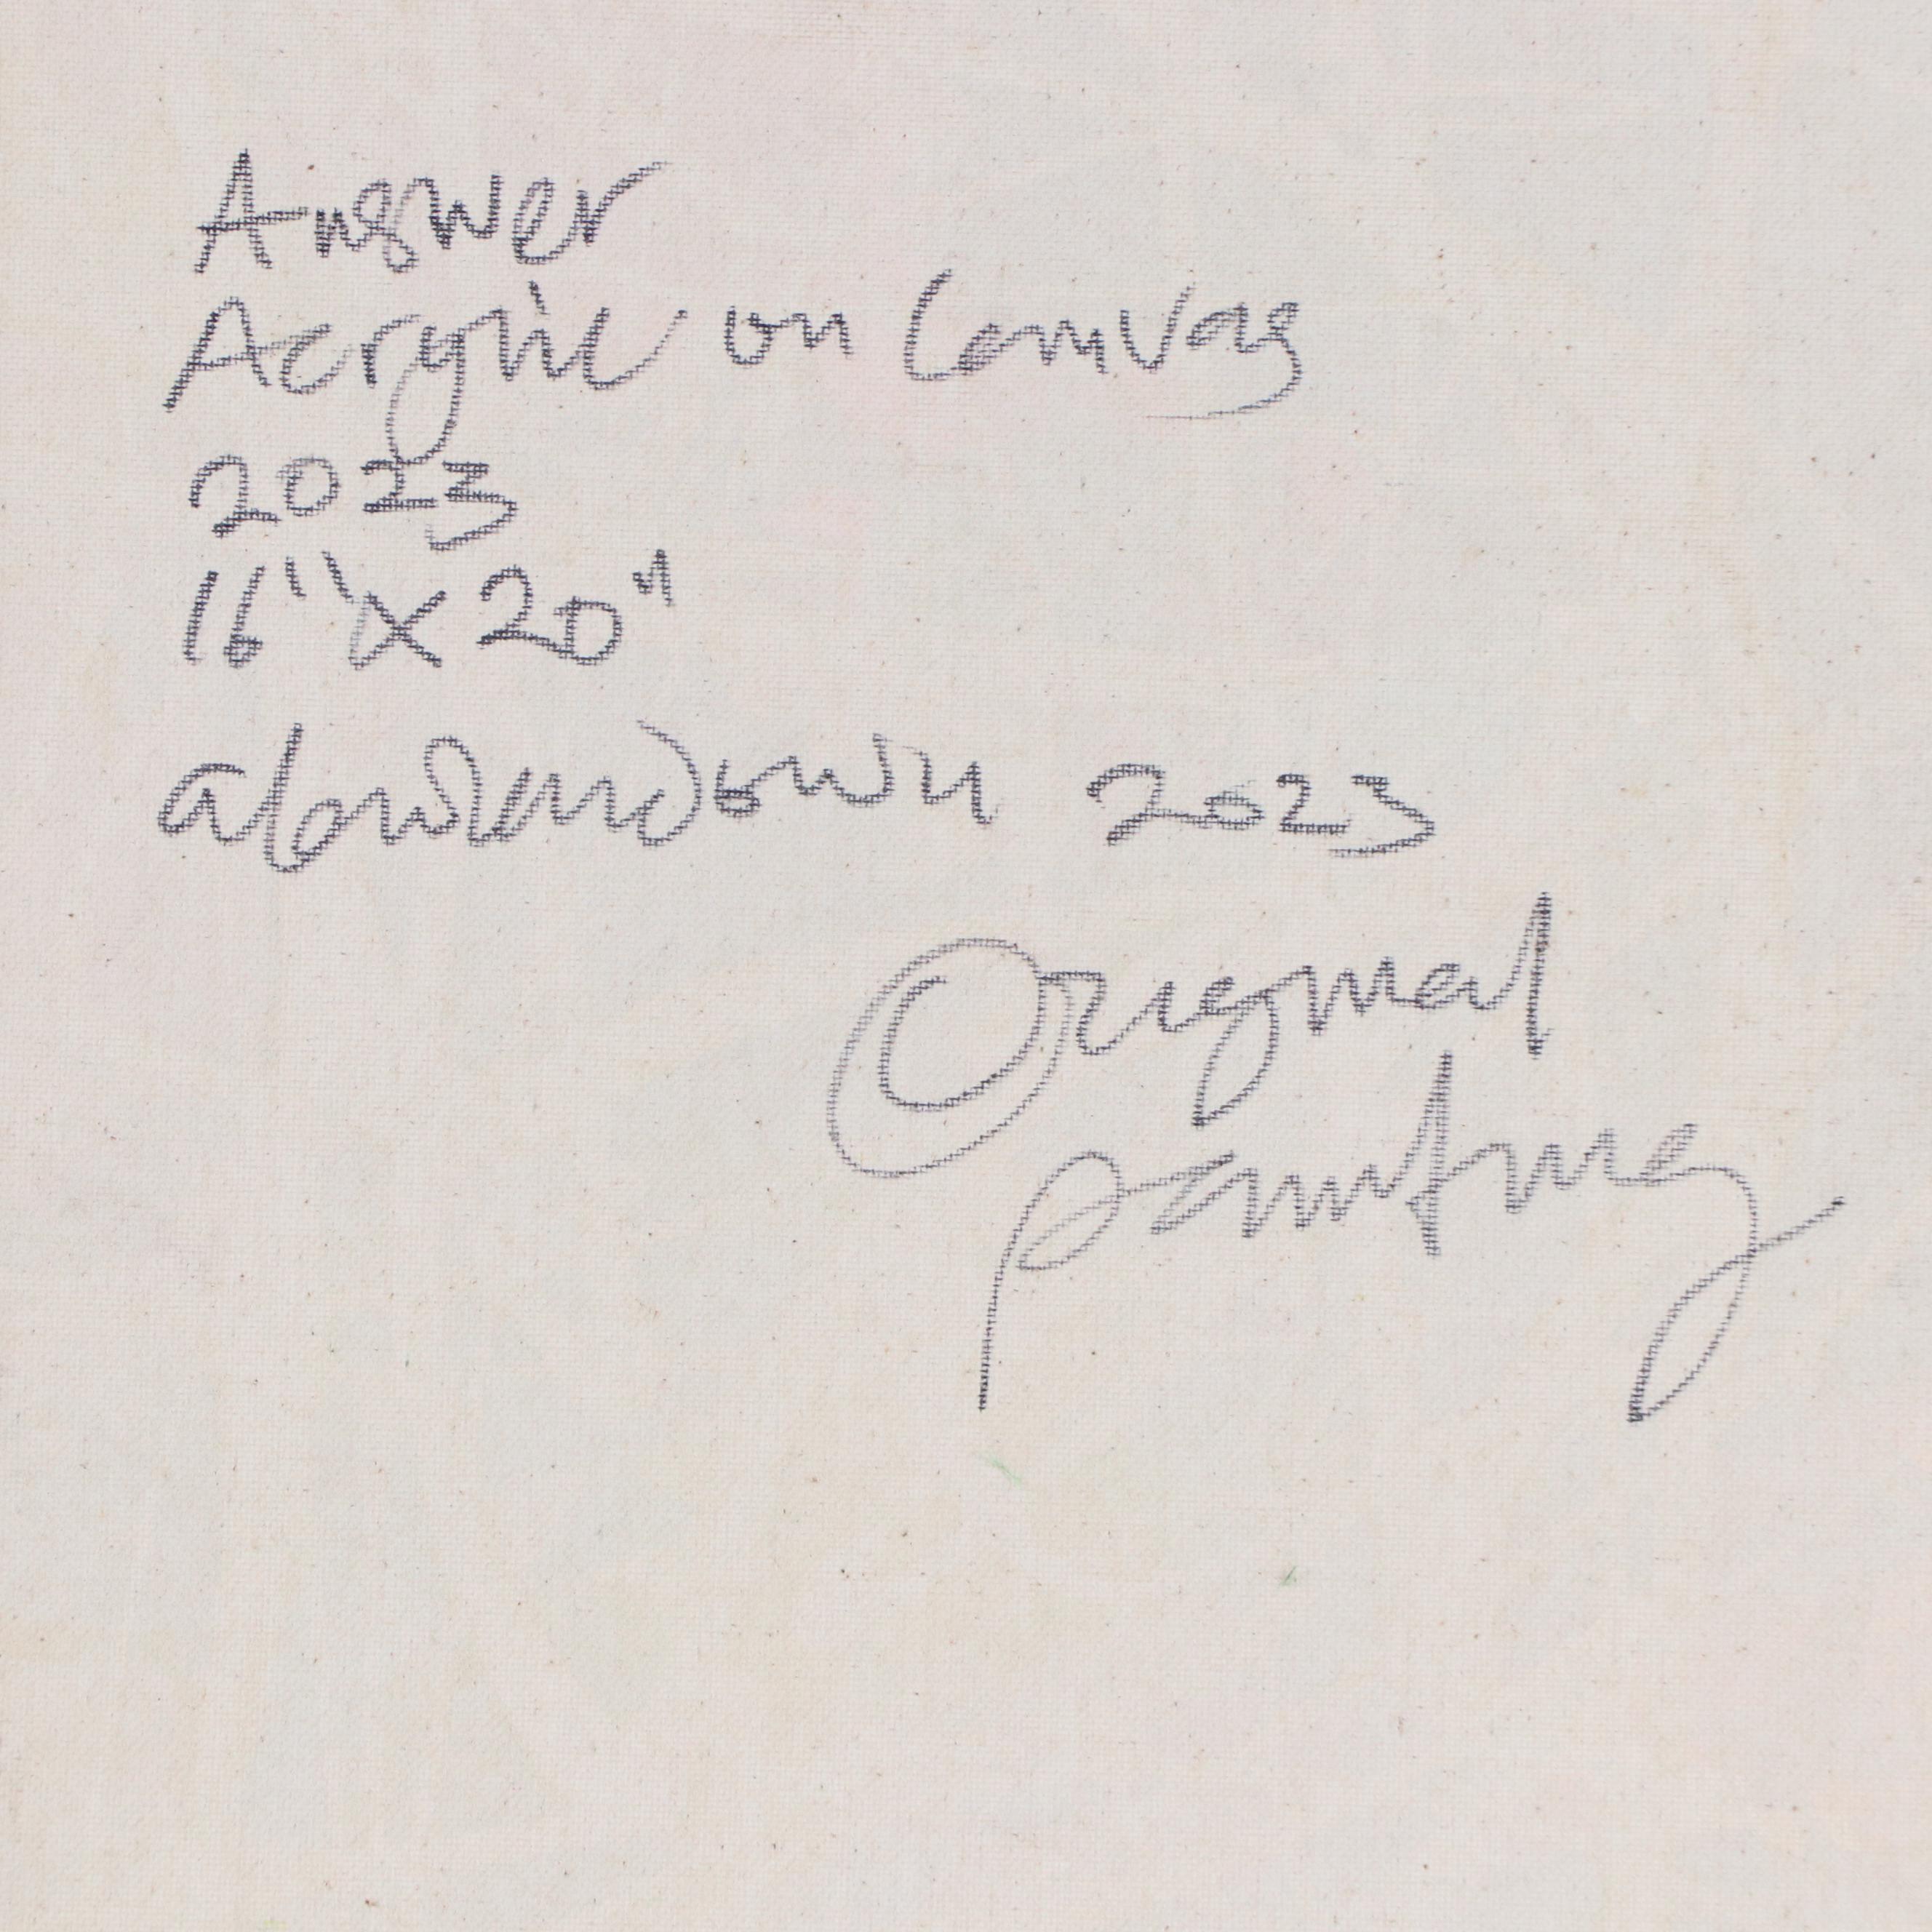 Answer
Acrylic on Canvas
2023
16" X 20"
2023
Original
Painting